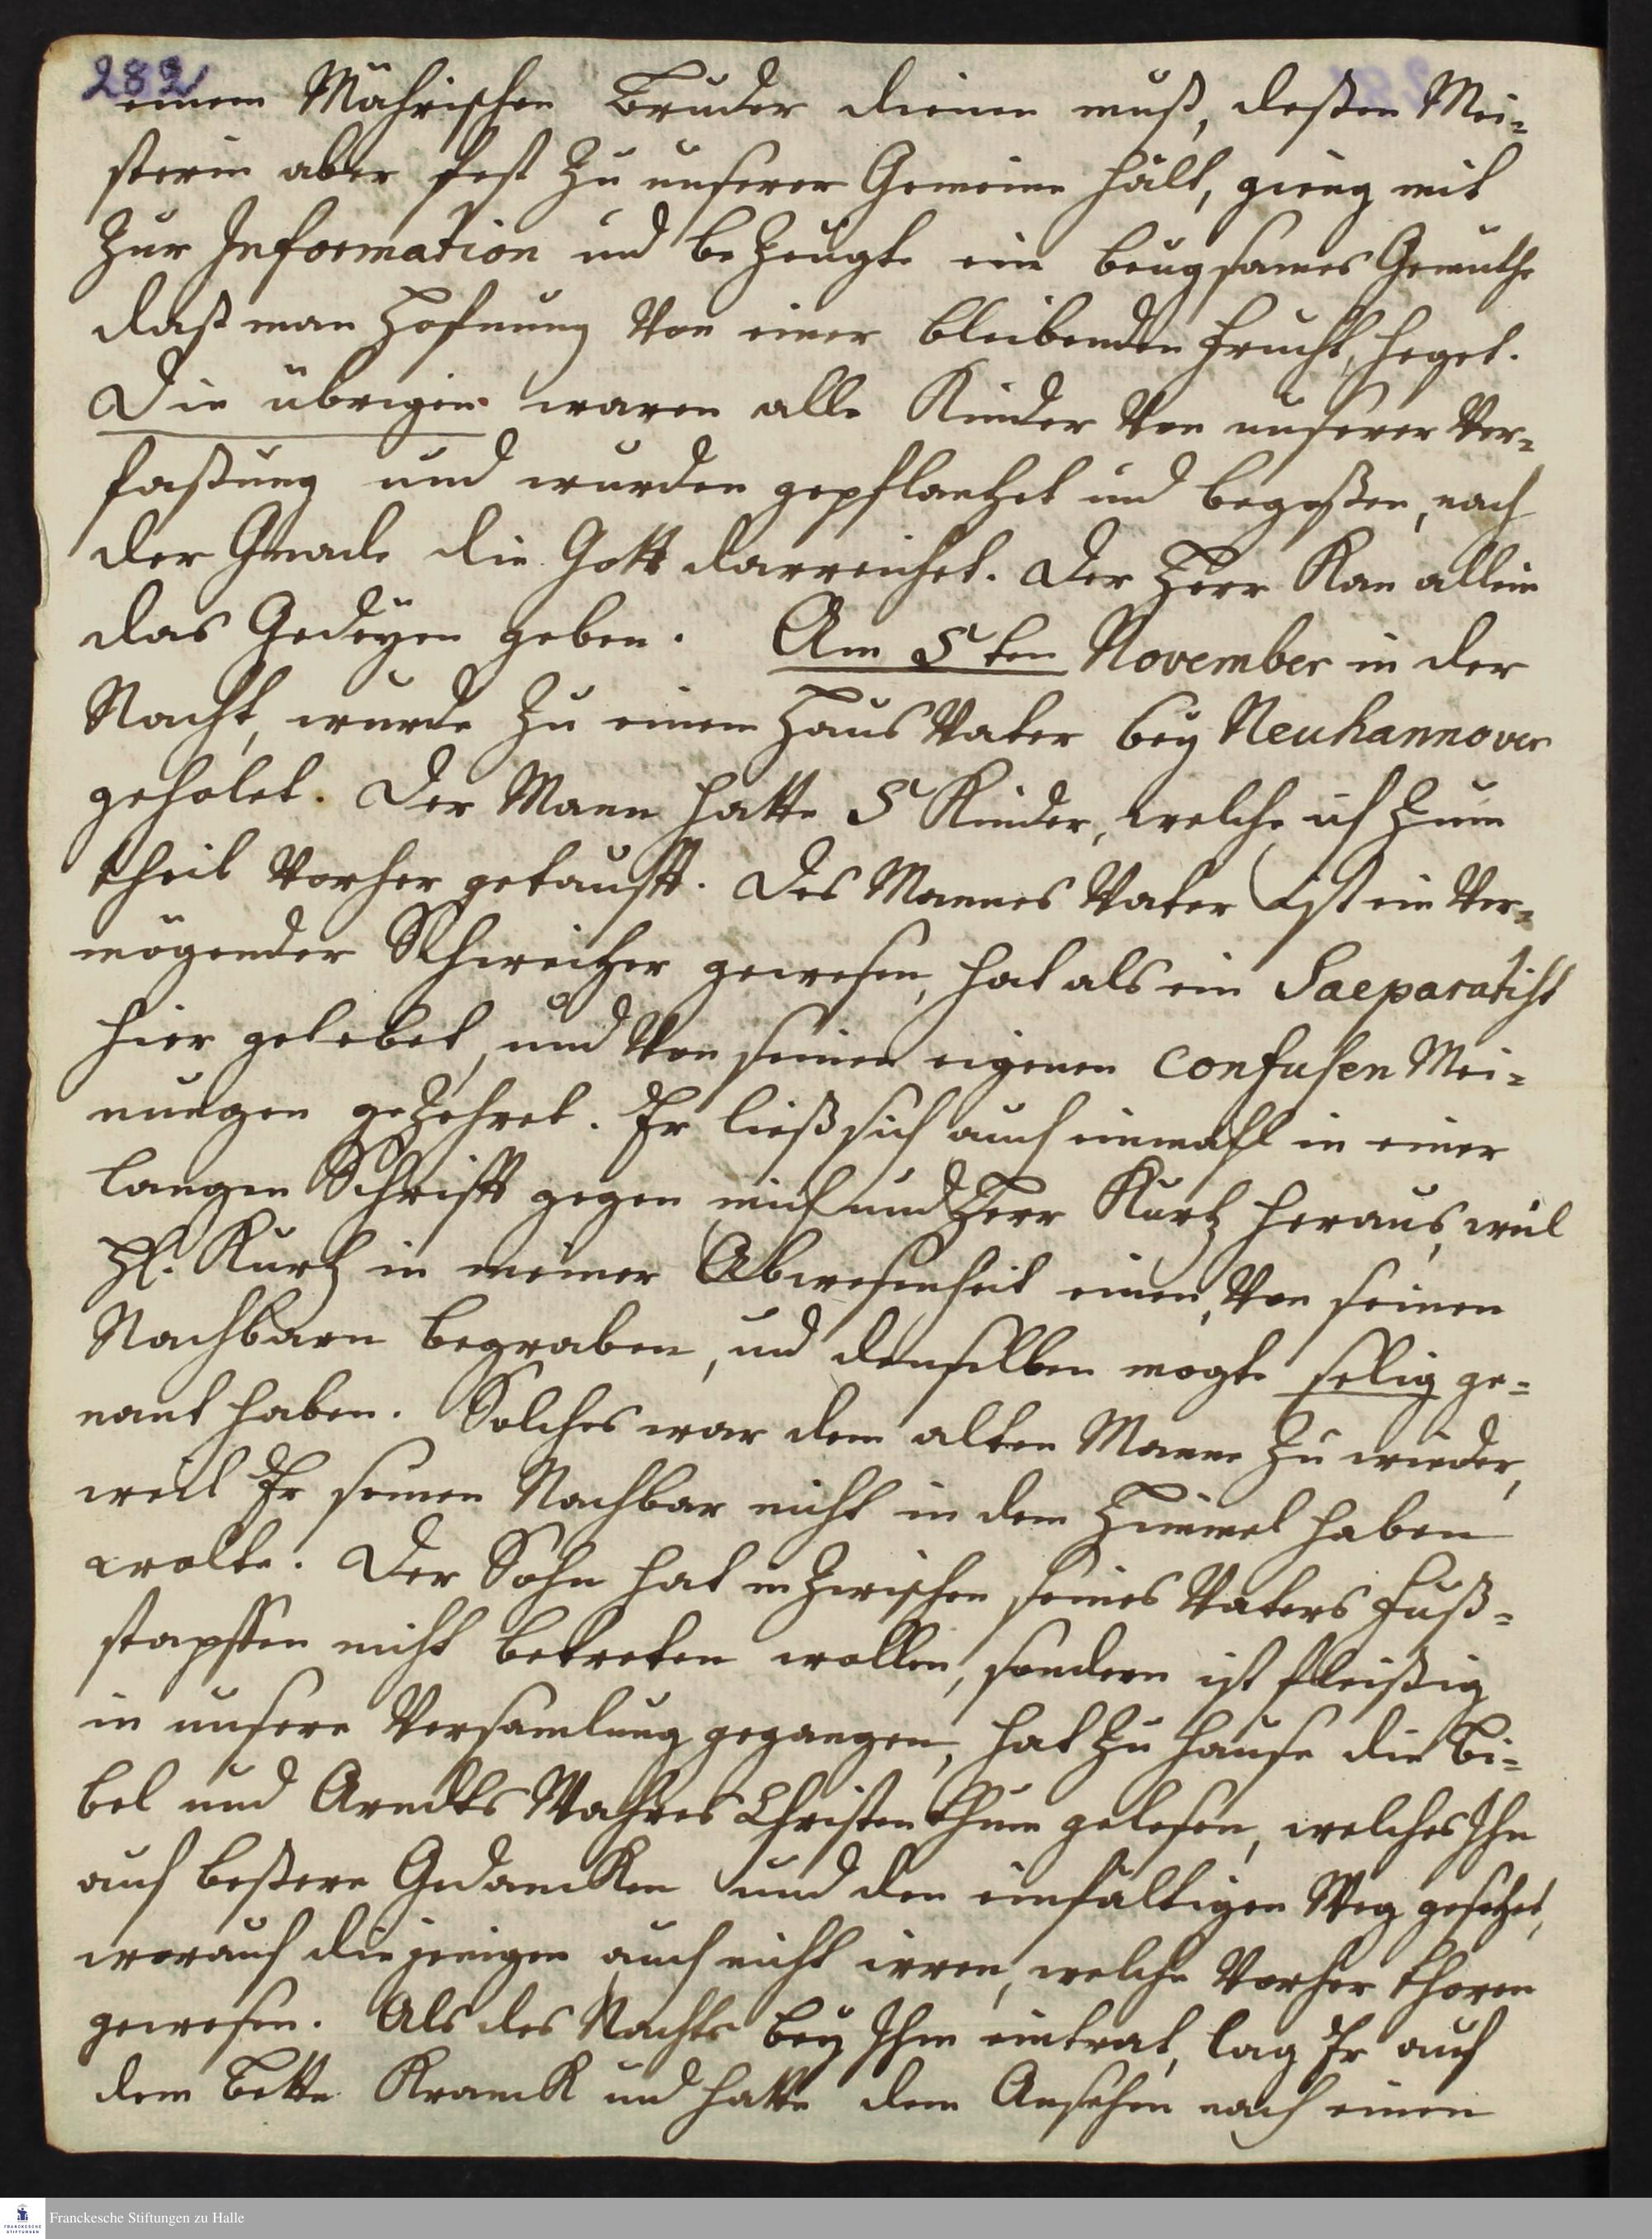 282
einem Mährischen Bruder dienen muß, deßen Mei-
sterin aber fest zu unserer Gemeine hält, gieng mit
zur Information und bezeugte ein beugsames Gemüthe
daß man Hofnung von einer bleibenden Frucht heget.
Die übrigen waren alle Kinder von unserer Ver-
faßung und wurden gepflantzet und begoßen, nach
der Gnade die Gott darreichet. Der Herr Kan allein
das Gedeyen geben. Am 5ten November in der
Nacht, wurde zu einem Haus Vater bey Neuhannover
geholet. Der Mann hatte 5 Kinder, welche ich zum
theil vorher getaufft. Des Mannes Vater ist ein Ver-
mögender Schweitzer gewesen, hat als ein Saeparatist
hier gelebet, und von seinen eigenen confusen Mei-
nungen gezehret. Er ließ sich auch einmahl in einer
langen Schrifft gegen mich und Herr Kurtz heraus, weil
H. Kurtz in meiner Abwesenheit einen, von seinen
Nachbarn begraben, und denselben mogte selig ge-
nant haben. Solches war dem alten Manne zu wieder,
weil Er seinen Nachbar nicht in dem Himmel haben
wolte. Der Sohn hat inzwischen seines Vaters Fuß-
stapffen nicht betreten wollen, sondern ist fleißig
in unsere Versamlung gegangen, hat zu Hause die Bi-
bel und Arndts Wahres Christenthum gelesen, welches Ihn
auf beßere Gedancken und den einfältigen Weg gesetzet,
worauf diejenigen auch nicht irren, welche vorher thoren
gewesen. Als des Nachts bey Ihm eintrat, lag Er auf
dem Bette Kranck und hatte dem Ansehen nach einen
Franckesche Stiftungen zu Halle